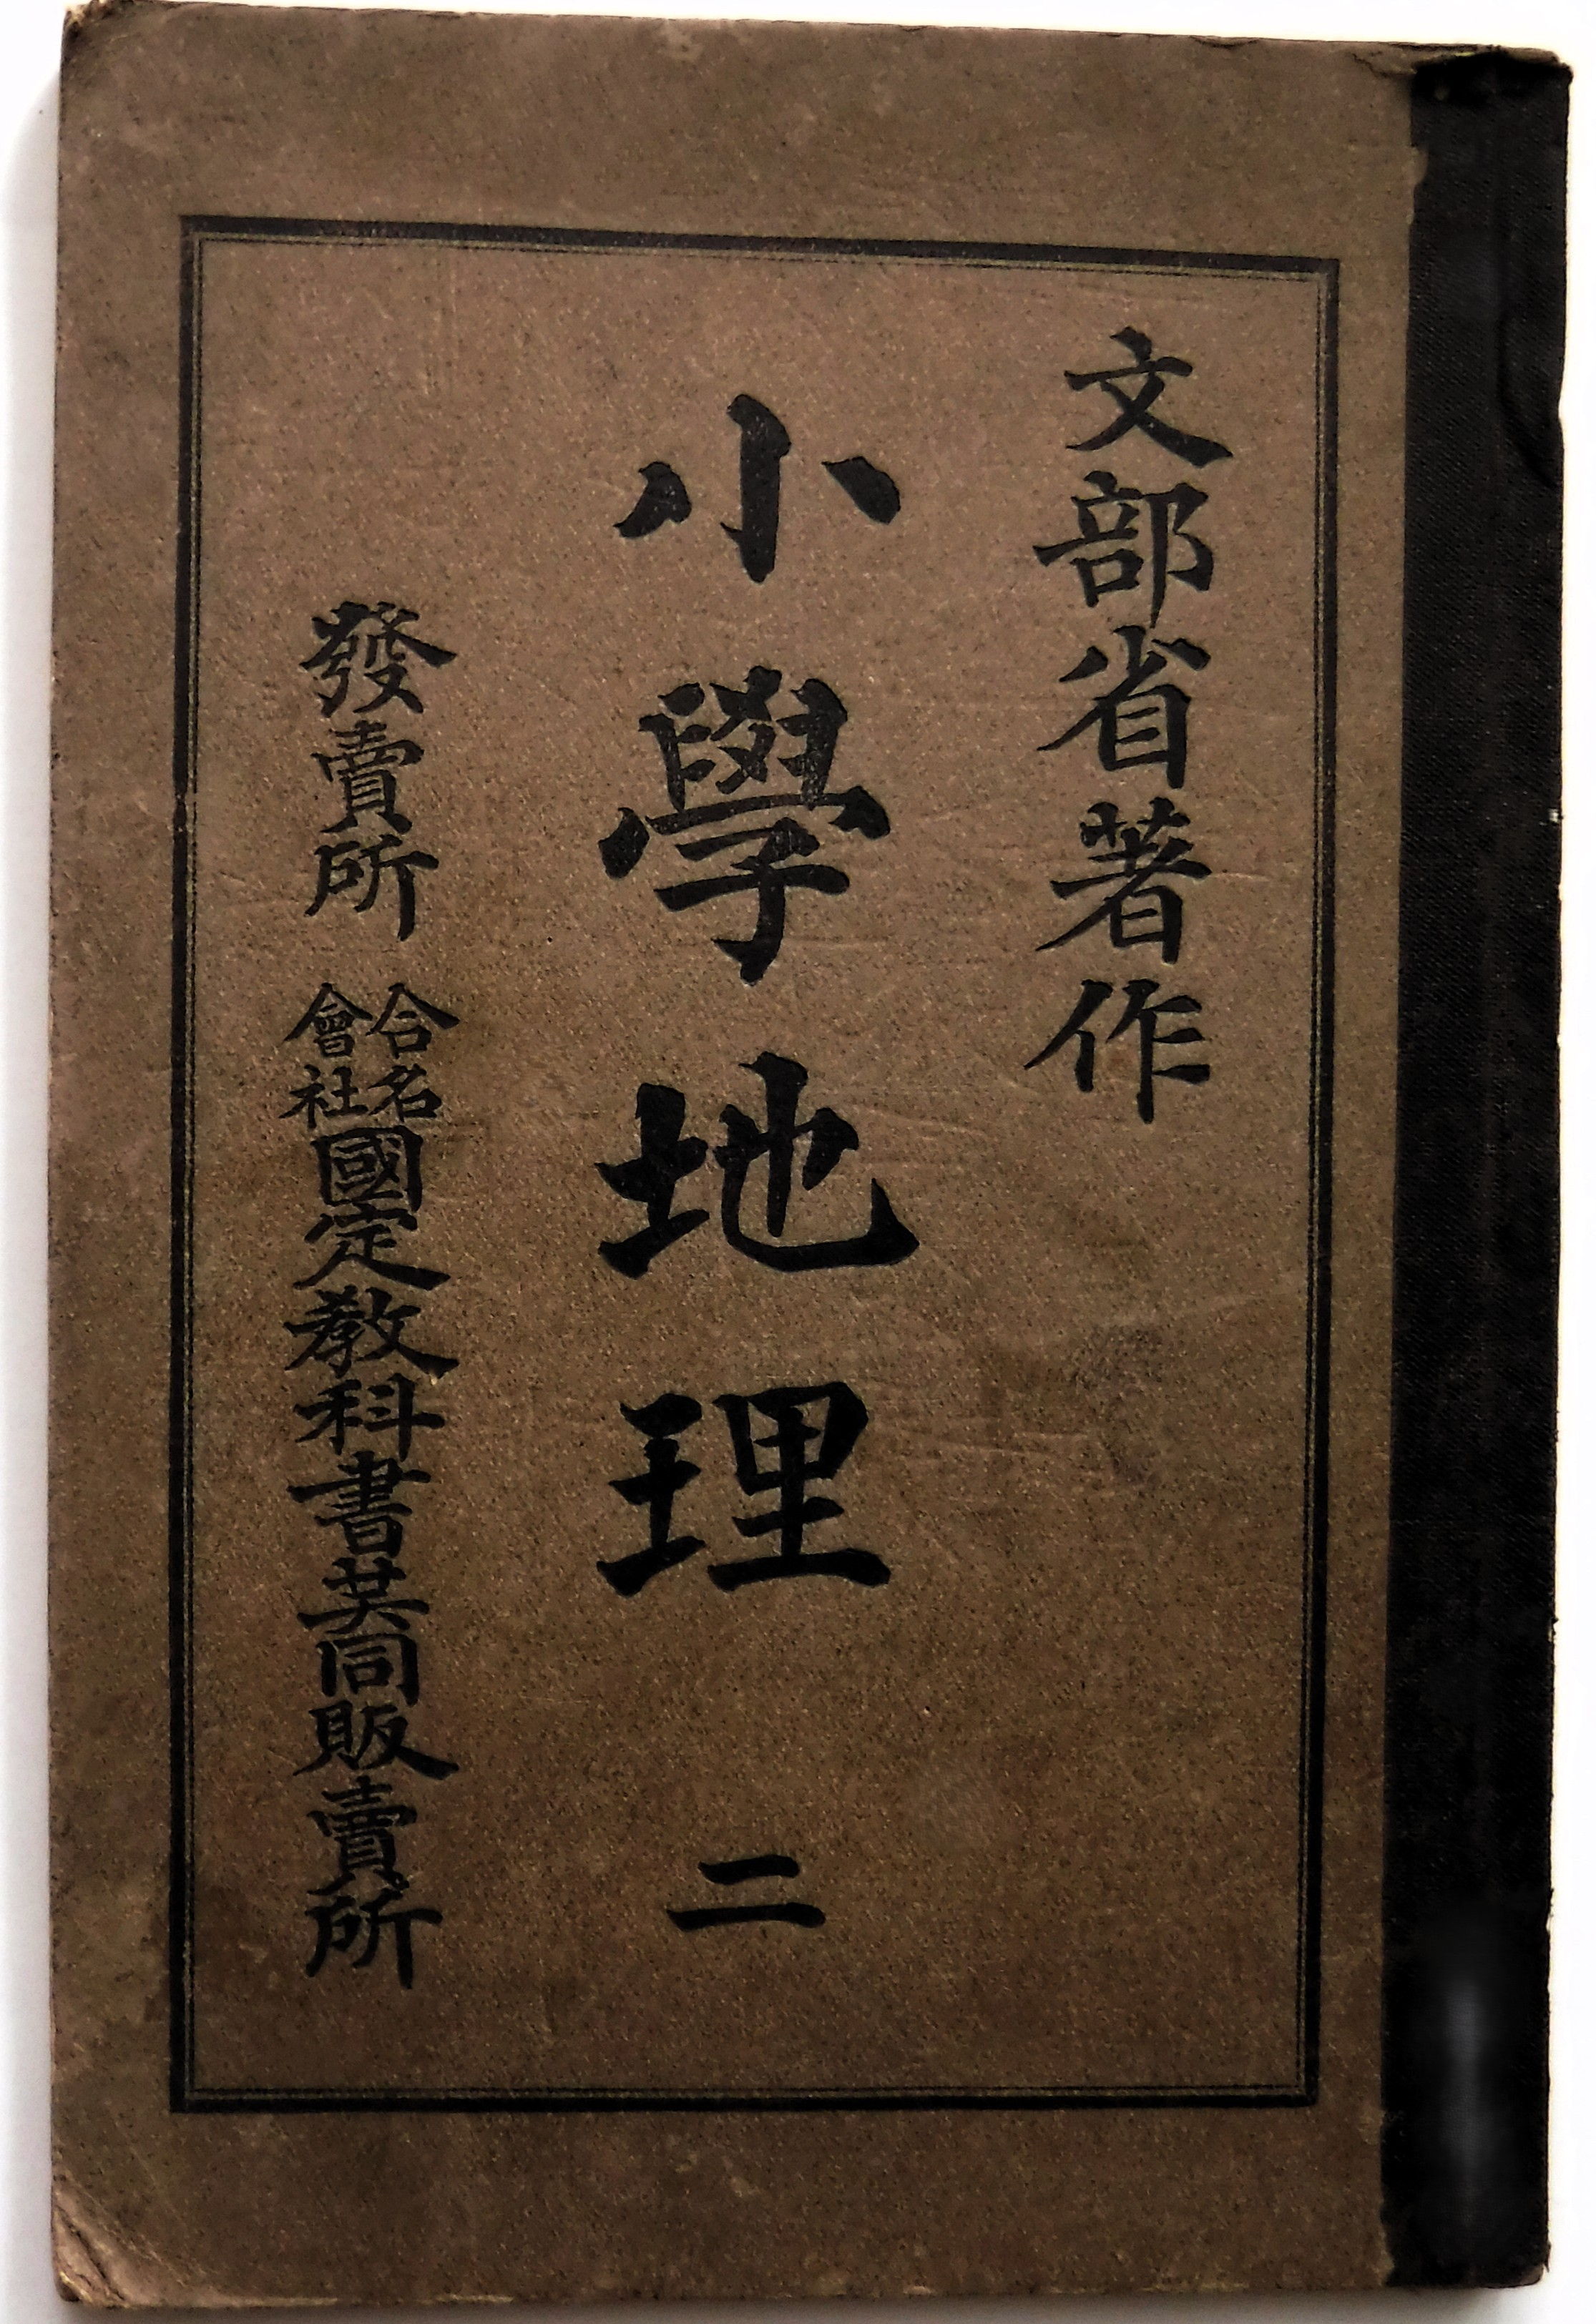 文部省著作
小學地理 二
發賣所 合名會社國定教科書共同販賣所